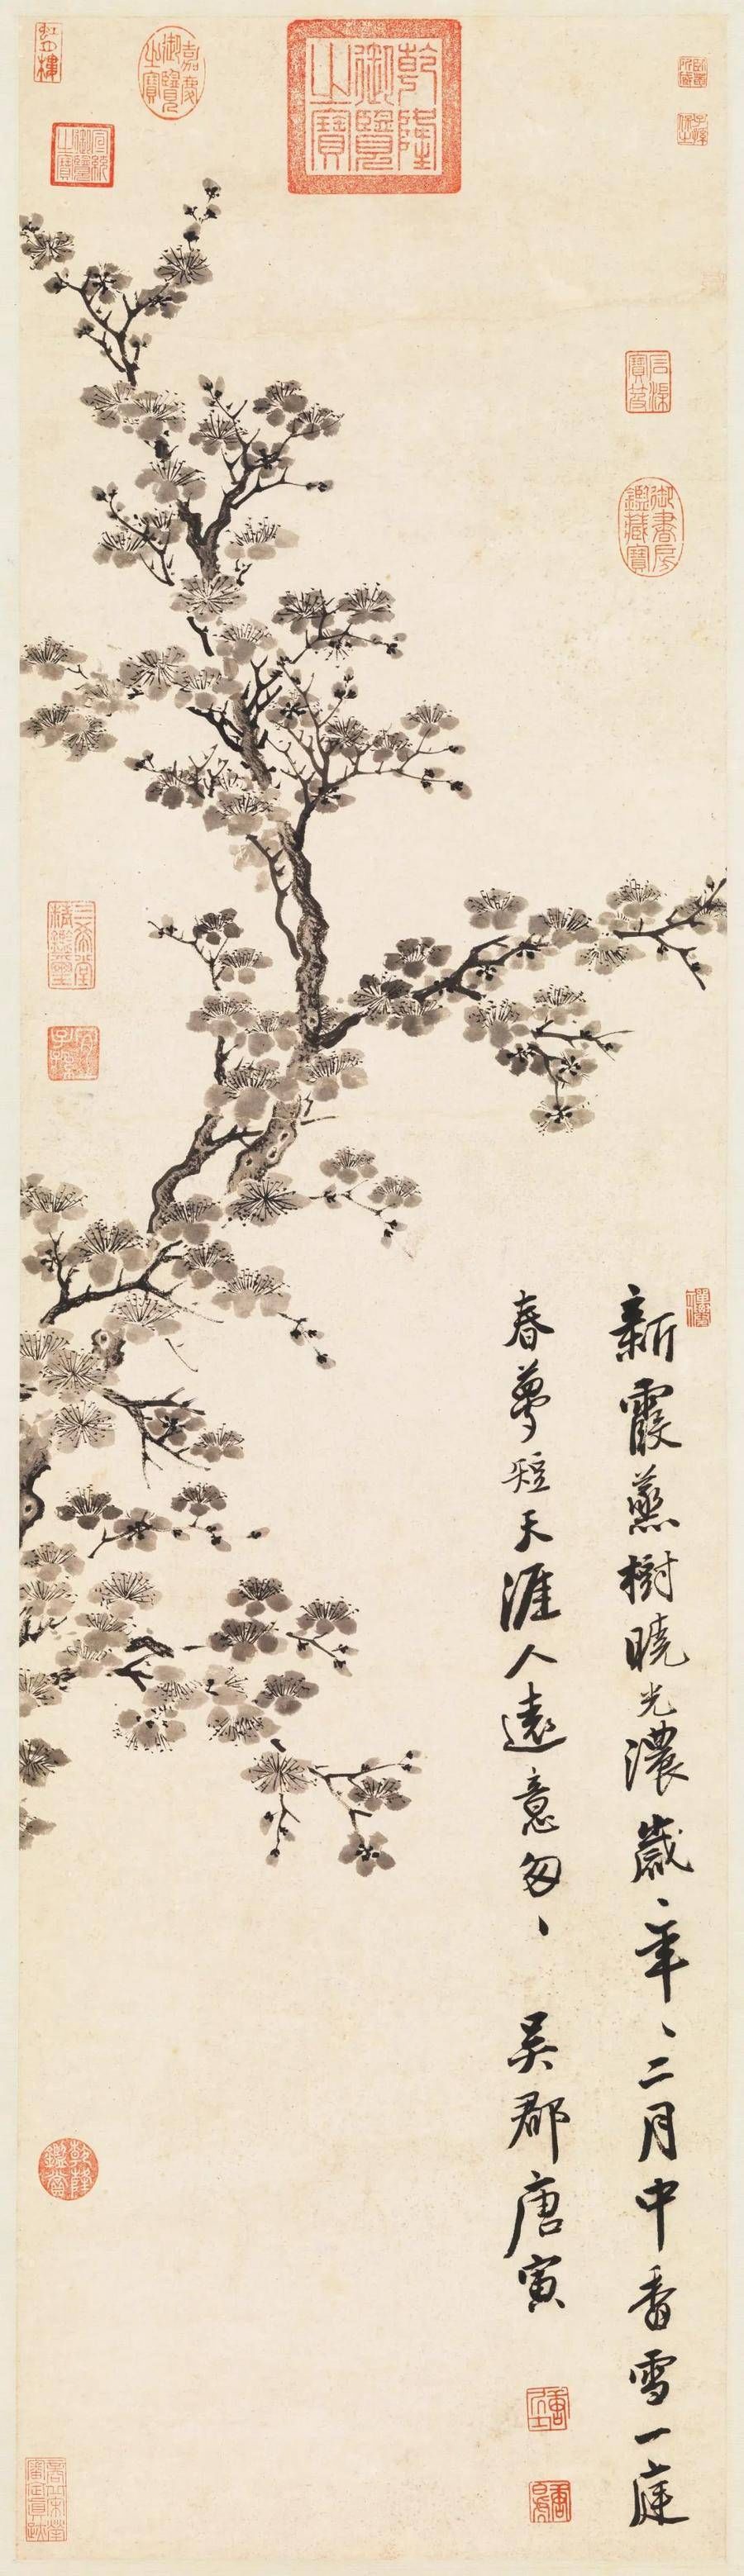 乾隆御覽之寶
嘉慶御覽之寶
宣統御覽之寶
石渠寶笈
御書房鑑藏寶
新霞蒸樹曉光濃歲、年、二月中香雪一庭
春夢短天涯人遠意匆、 吳郡唐寅
三希堂精鑑璽
宜子孫
乾隆鑑賞